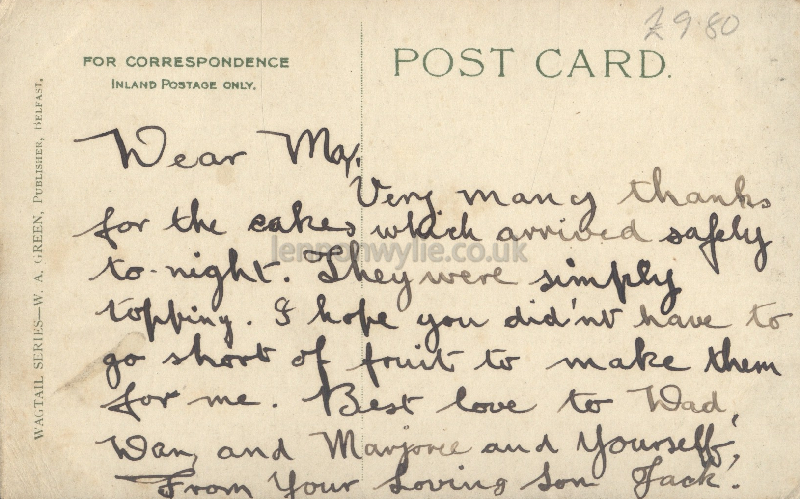 £9.80
FOR CORRESPONDENCE
INLAND POSTAGE ONLY.
POST CARD.
WAGTAIL SERIES—W. A. GREEN, PUBLISHER, BELFAST.
Dear Ma,
Very many thanks
for the cakes which arrived safely
to-night. They were simply
topping. I hope you did'nt have to
go short of fruit to make them
for me. Best love to Dad,
Dan, and Marjorie and Yourself,
From Your Loving Son Jack.
lennonwylie.co.uk